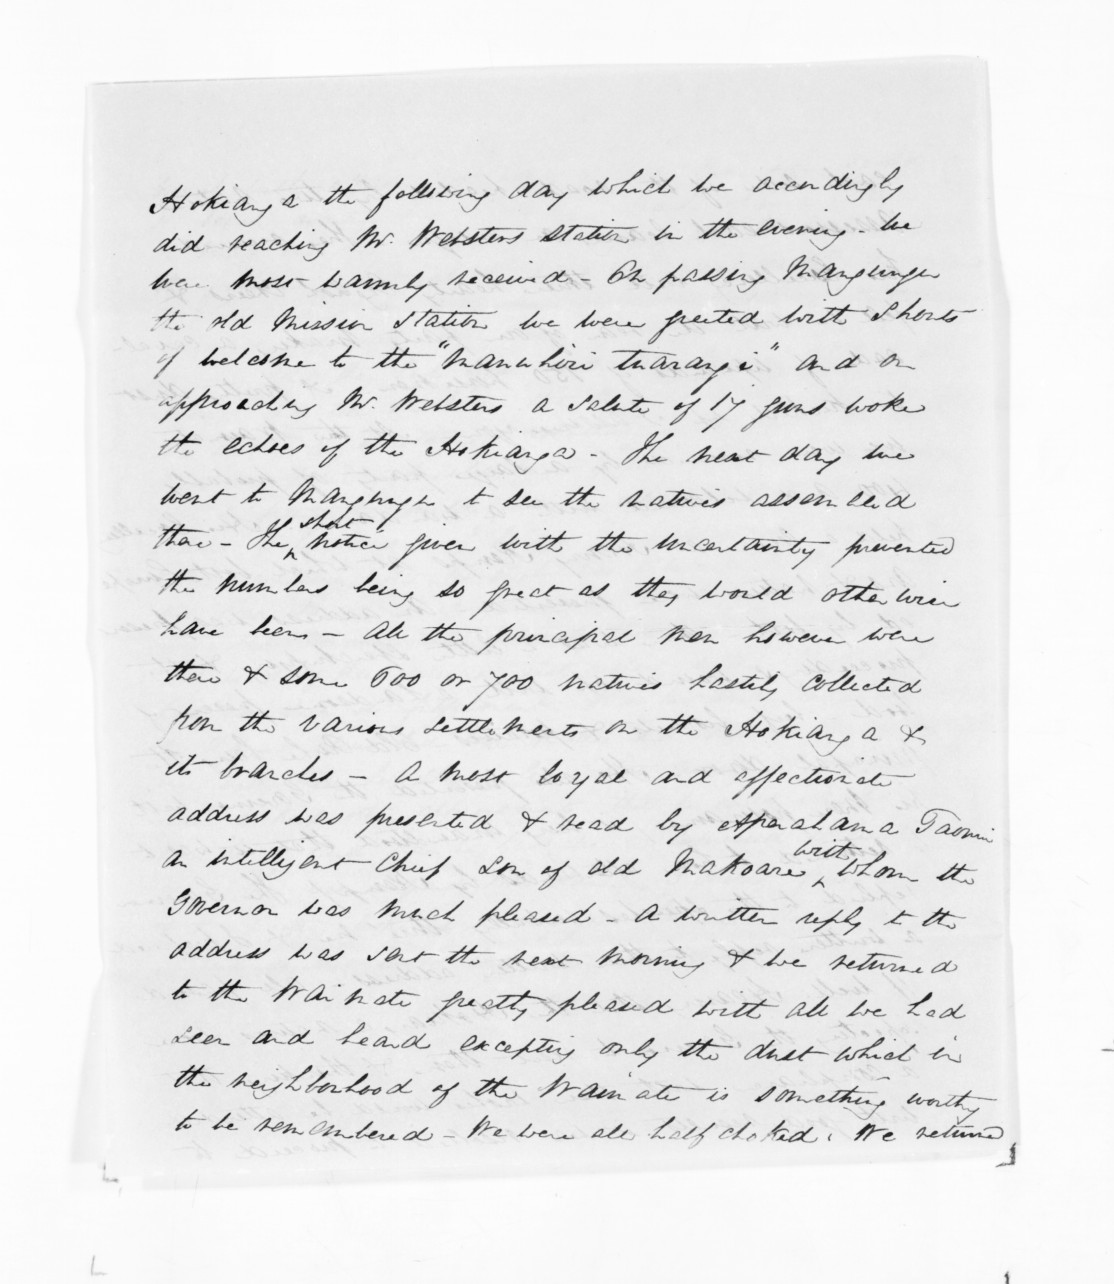 Hokianga the following day which we accordingly
did reaching Mr. Websters station in the evening - We
were most warmly received - On passing Mangungu
the old Mission Station we were greeted with Shouts
of welcome to the "Manuhiri tuarangi" and on
approaching Mr. Websters a salute of 17 guns woke
the echoes of the Hokianga - The next day we
went to Mangungu to see the natives assembled
there - The short notice given with the uncertainty prevented
the numbers being so great as they would otherwise
have been - All the principal men however were
there & some 600 or 700 natives hastily collected
from the various settlements on the Hokianga &
its branches - A most loyal and affectionate
address was presented & read by Aperahama Taonui
an intelligent Chief son of old Makoare with whom the
Governor was much pleased - A written reply to the
address was sent the next morning & we returned
to the Waimate greatly pleased with all we had
seen and heard excepting only the dust which in
the neighborhood of the Waimate is something worthy
to be remembered - We were all half choked. We returned